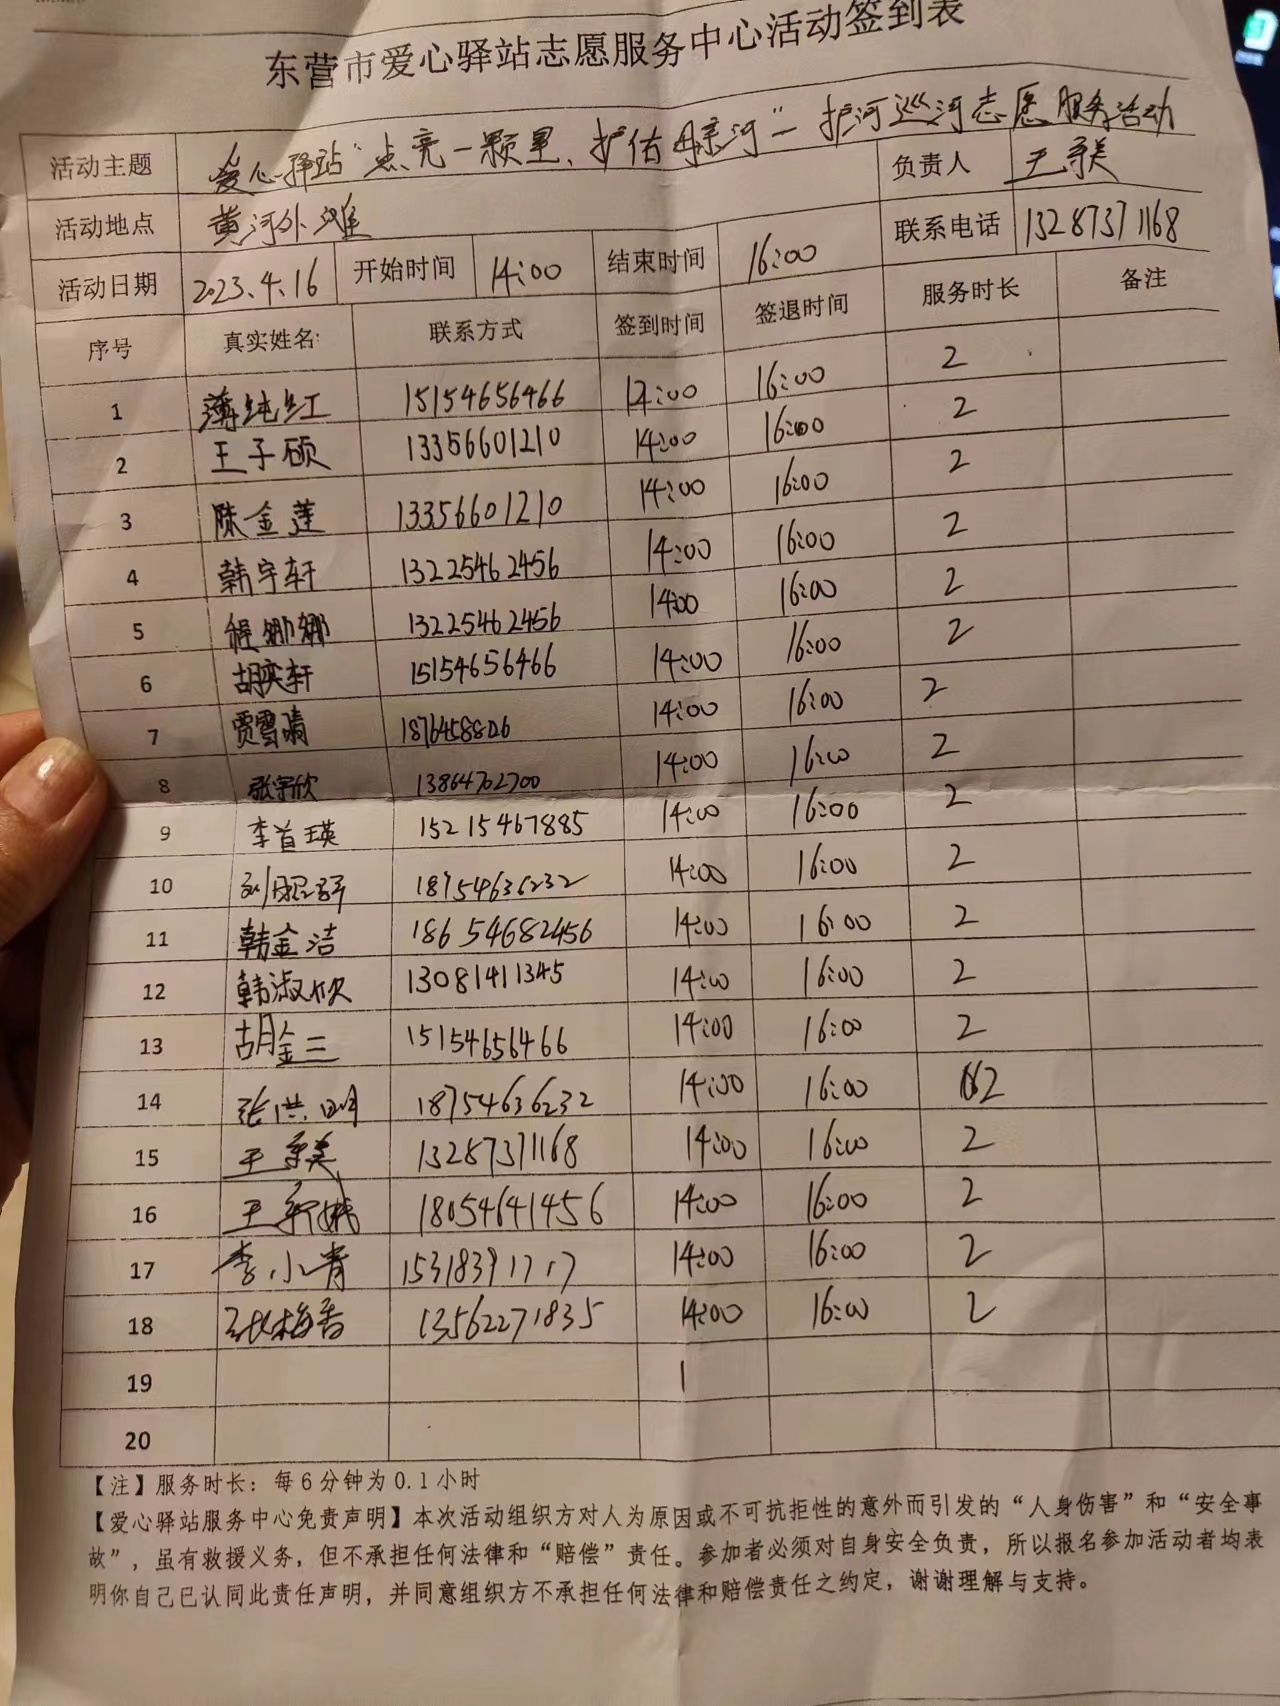 东营市爱心驿站志愿服务中心活动签到表
活动主题 爱心驿站“点亮一颗星、护佑母亲河”—护河巡河志愿服务活动 负责人 王秀美
活动地点 黄河外滩 联系电话 13287371168
活动日期 2023.4.16 开始时间 14:00 结束时间 16:00
序号 真实姓名: 联系方式 签到时间 签退时间 服务时长 备注
1 薄纯红 15154656466 14:00 16:00 2
2 王子硕 13356601210 14:00 16:00 2
3 陈金莲 13356601210 14:00 16:00 2
4 韩宇轩 13225462456 14:00 16:00 2
5 程娜娜 13225462456 14:00 16:00 2
6 胡奕轩 15154656466 14:00 16:00 2
7 贾雪晴 14:00 16:00 2
8 张宇欣 13864702700 14:00 16:00 2
9 李首瑛 15215467885 14:00 16:00 2
10 18754636232 14:00 16:00 2
11 韩金洁 18654682456 14:00 16:00 2
12 韩淑欣 13081411345 14:00 16:00 2
13 胡金三 15154656466 14:00 16:00 2
14 张洪明 18754636232 14:00 16:00 2
15 王秀美 13287371168 14:00 16:00 2
16 18054641456 14:00 16:00 2
17 李小青 15318391717 14:00 16:00 2
18 张梅香 13562271835 14:00 16:00 2
19
20
【注】服务时长：每6分钟为0.1小时
【爱心驿站服务中心免责声明】本次活动组织方对人为原因或不可抗拒性的意外而引发的“人身伤害”和“安全事
故”，虽有救援义务，但不承担任何法律和“赔偿”责任。参加者必须对自身安全负责，所以报名参加活动者均表
明你自己已认同此责任声明，并同意组织方不承担任何法律和赔偿责任之约定，谢谢理解与支持。